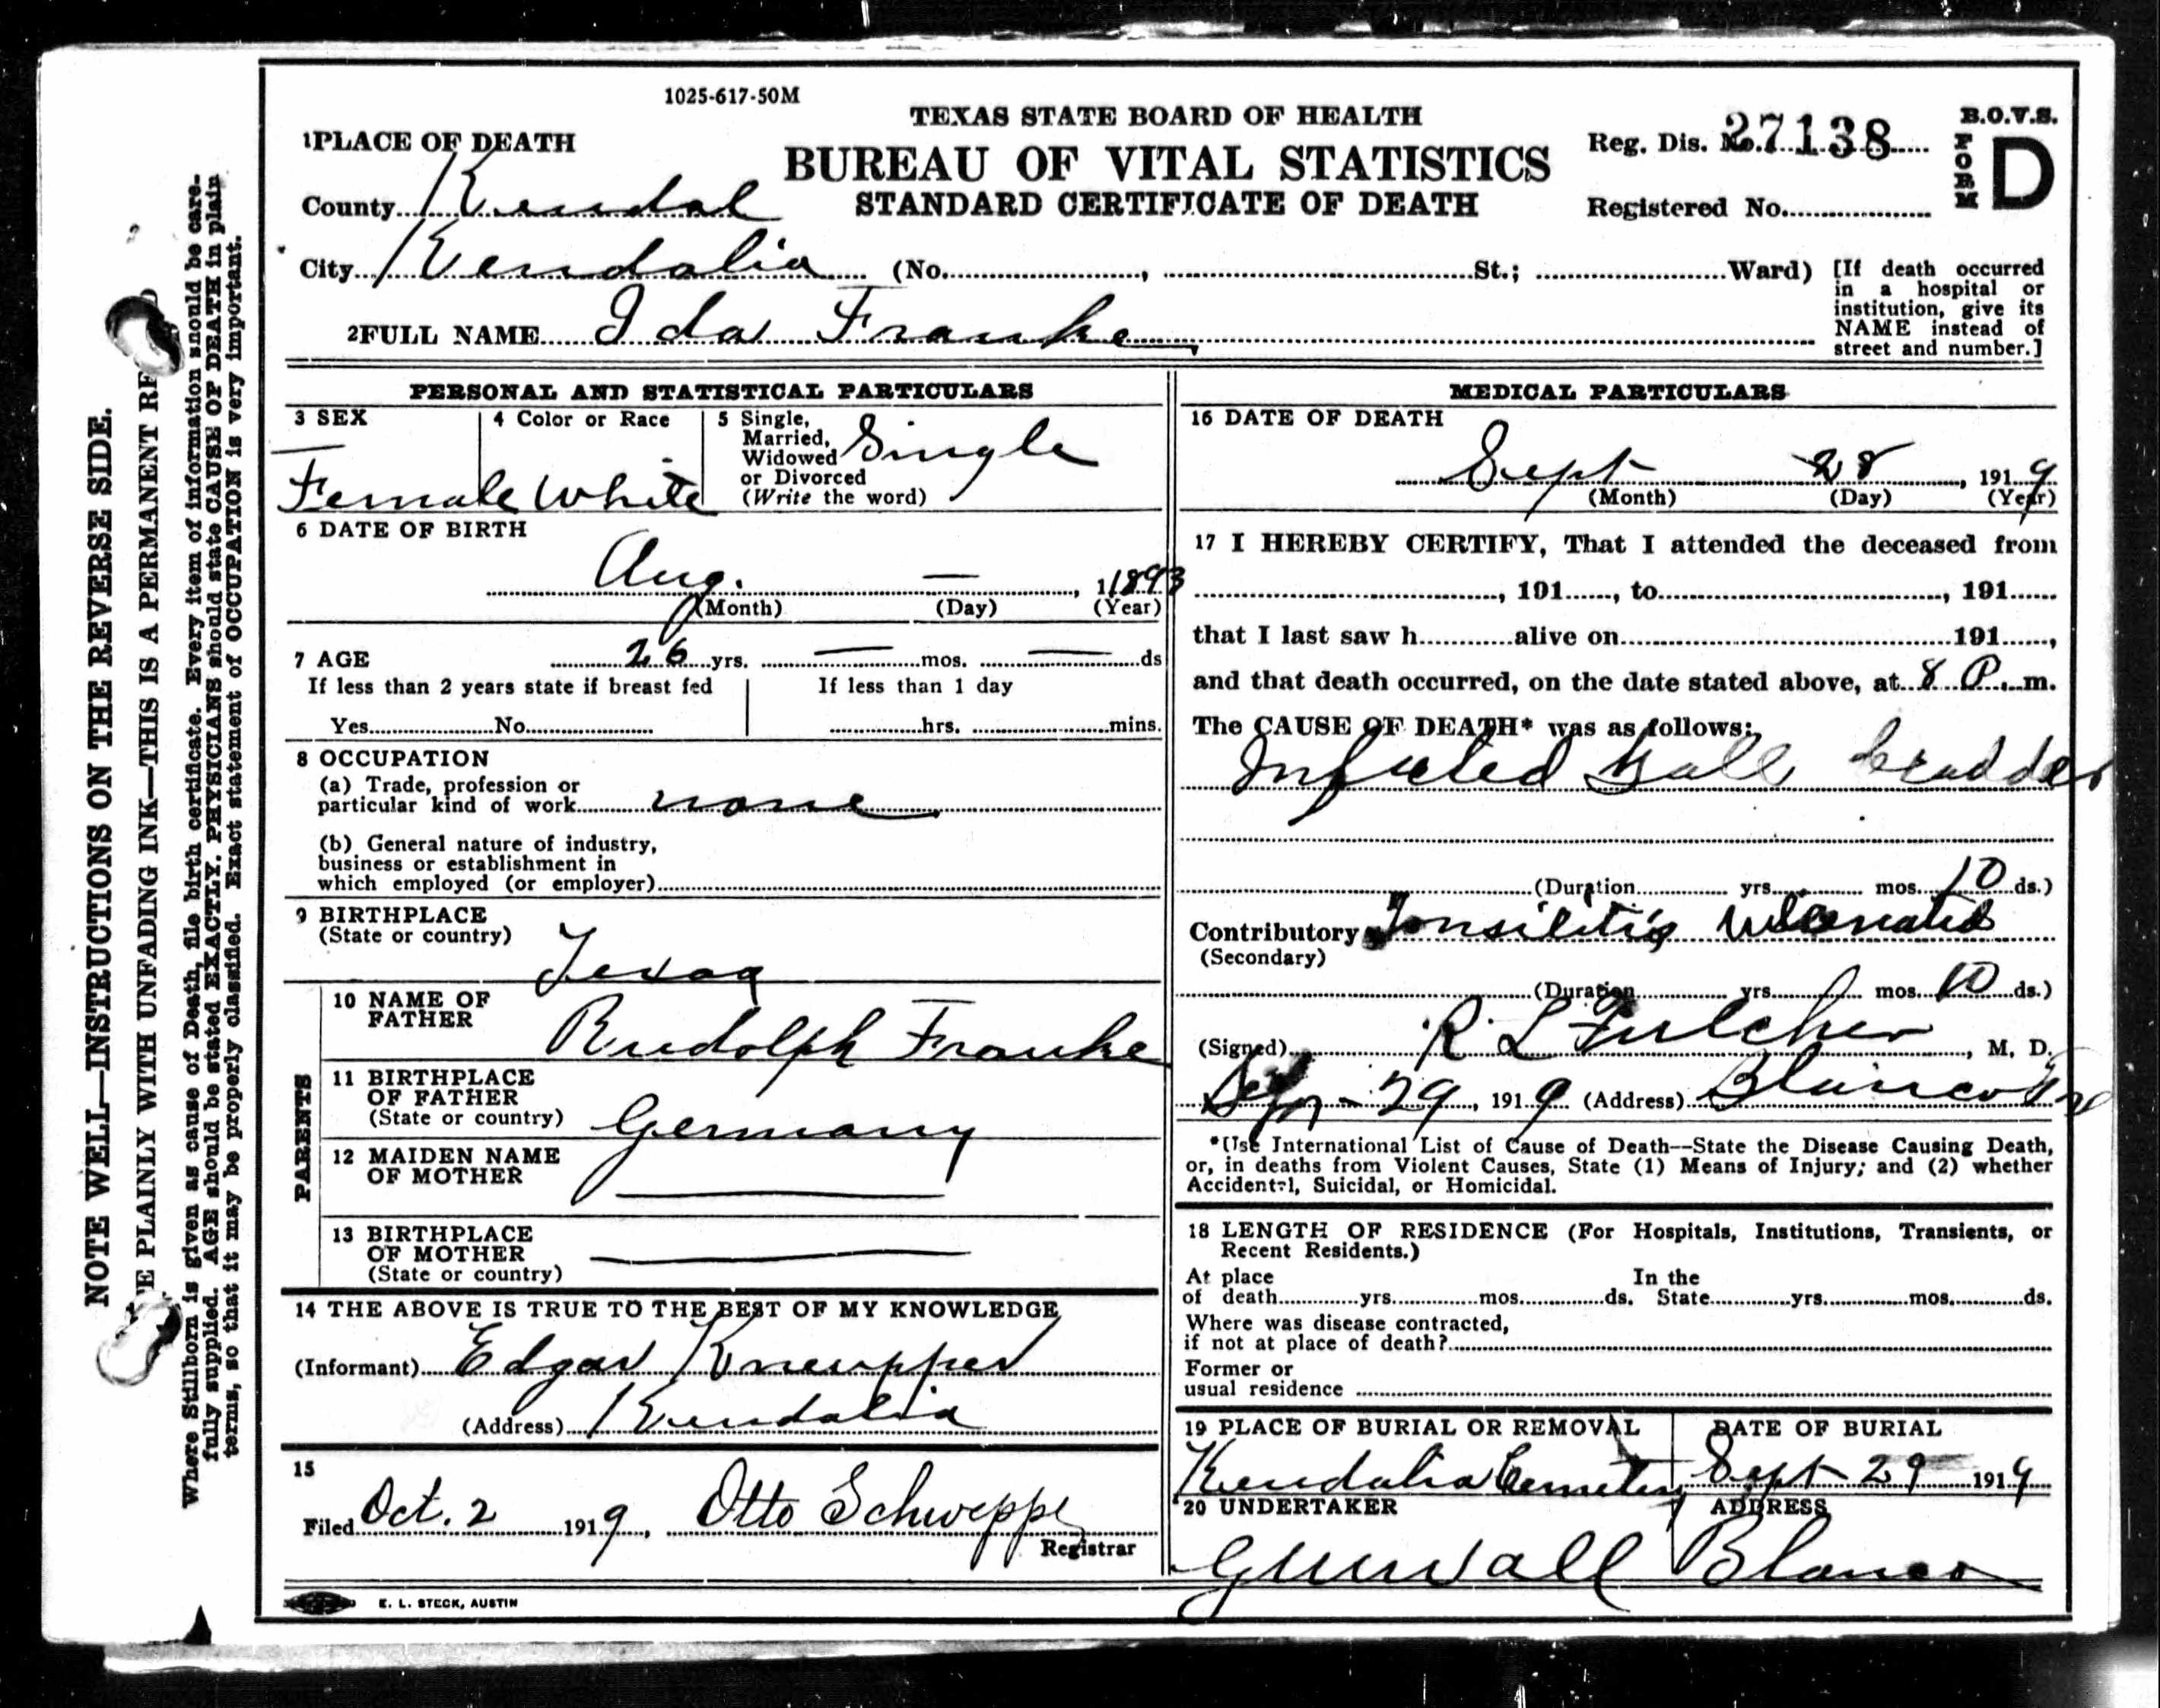 1025-617-50M
TEXAS STATE BOARD OF HEALTH
BUREAU OF VITAL STATISTICS
STANDARD CERTIFICATE OF DEATH
Reg. Dis. No. 27138
Registered No.
B.O.V.S.
FORM D
1 PLACE OF DEATH
County Kendal
City Kendalia (No. , St.; Ward)
[If death occurred
in a hospital or
institution, give its
NAME instead of
street and number.]
2 FULL NAME Ida Franke
PERSONAL AND STATISTICAL PARTICULARS
3 SEX
Female
4 Color or Race
White
5 Single,
Married,
Widowed
or Divorced
(Write the word)
Single
6 DATE OF BIRTH
Aug. — , 1 1893
(Month) (Day) (Year)
7 AGE 26 yrs. — mos. — ds
If less than 2 years state if breast fed
Yes No
If less than 1 day
hrs. mins.
8 OCCUPATION
(a) Trade, profession or
particular kind of work none
(b) General nature of industry,
business or establishment in
which employed (or employer)
9 BIRTHPLACE
(State or country)
Texas
PARENTS
10 NAME OF
FATHER
Rudolph Franke
11 BIRTHPLACE
OF FATHER
(State or country)
Germany
12 MAIDEN NAME
OF MOTHER
13 BIRTHPLACE
OF MOTHER
(State or country)
14 THE ABOVE IS TRUE TO THE BEST OF MY KNOWLEDGE
(Informant) Edgar Kneupper
(Address) Kendalia
15
Filed Oct. 2 1919, Otto Schweppe
Registrar
E. L. STECK, AUSTIN
MEDICAL PARTICULARS
16 DATE OF DEATH
Sept 28, 1919
(Month) (Day) (Year)
17 I HEREBY CERTIFY, That I attended the deceased from
, 191 , to , 191
that I last saw h alive on 191 ,
and that death occurred, on the date stated above, at 8 P. m.
The CAUSE OF DEATH* was as follows:
Infected Gall bladder
(Duration yrs. mos. 10 ds.)
Contributory Tonsilitis Ulcerated
(Secondary)
(Duration yrs. mos. 10 ds.)
(Signed) R. L Fulcher, M. D.
Sept - 29, 1919 (Address) Blanco Tex
*Use International List of Cause of Death--State the Disease Causing Death,
or, in deaths from Violent Causes, State (1) Means of Injury; and (2) whether
Accidental, Suicidal, or Homicidal.
18 LENGTH OF RESIDENCE (For Hospitals, Institutions, Transients, or
Recent Residents.)
At place
of death yrs. mos. ds.
In the
State yrs. mos. ds.
Where was disease contracted,
if not at place of death?
Former or
usual residence
19 PLACE OF BURIAL OR REMOVAL
Kendalia Cemetery
DATE OF BURIAL
Sept 29 1919
20 UNDERTAKER
ADDRESS
Blanco
NOTE WELL—INSTRUCTIONS ON THE REVERSE SIDE.
PLAINLY WITH UNFADING INK—THIS IS A PERMANENT
Where Stillborn is given as cause of Death, file birth certificate. Every item of information should be care-
fully supplied. AGE should be stated EXACTLY. PHYSICIANS should state CAUSE OF DEATH in plain
terms, so that it may be properly classified. Exact statement of OCCUPATION is very important.